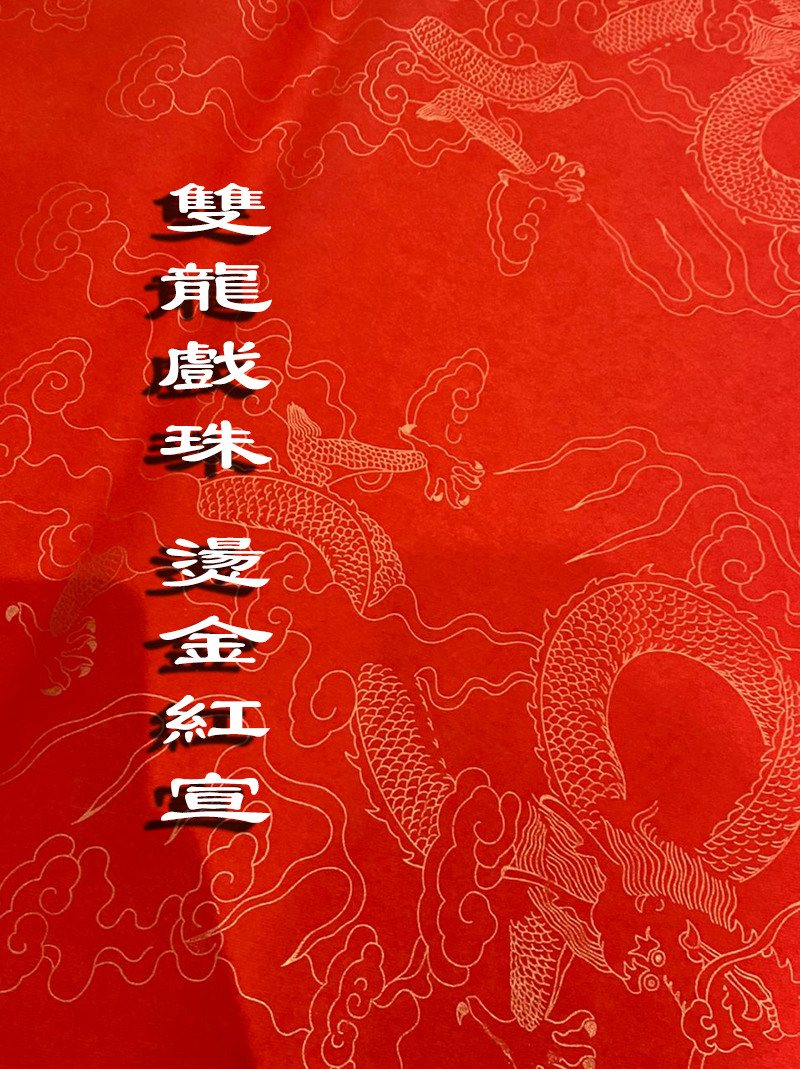 雙龍戲珠 燙金紅宣